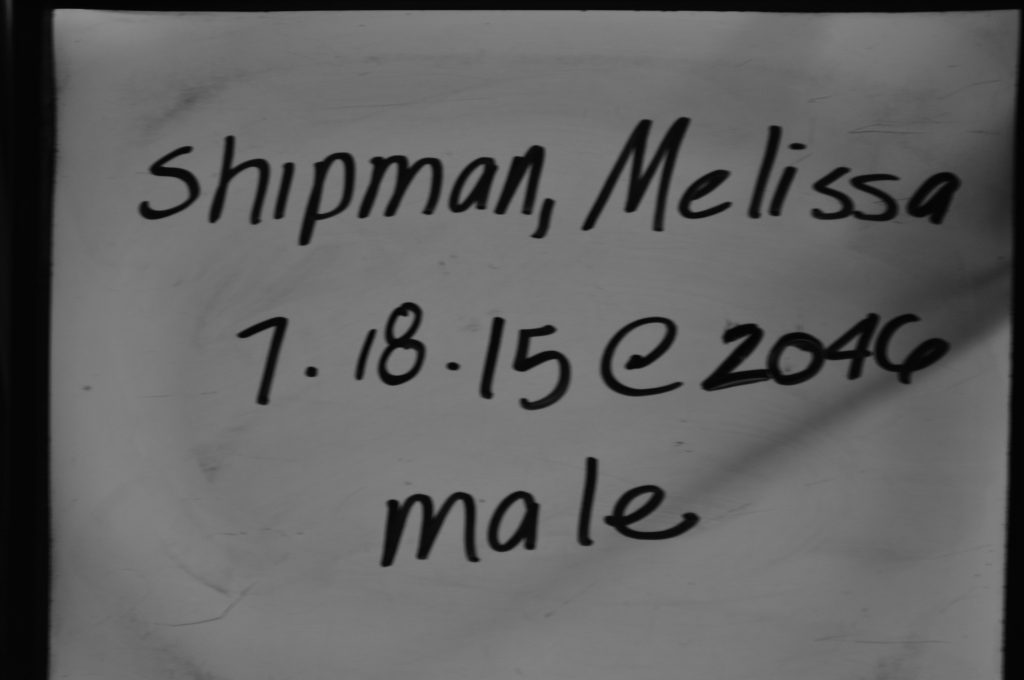 Shipman, Melissa
7.18.15 @ 2046
male